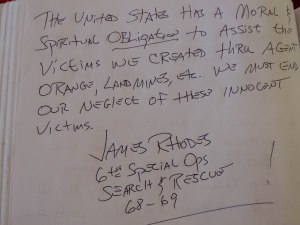 The United States has a moral &
Spritual Obligation to Assist the
Victims we created thru Agent
Orange, Landmines, etc. We must end
our neglect of these innocent
victims.
James Rhodes
6th Special Ops
Search & Rescue
68-69 !